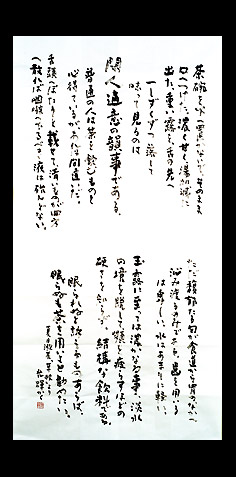 茶碗を下へ置かないでそのまま
口へつけた。濃く甘く、湯加減に
出た、重い露を、舌の先へ
一しずくずつ落して
味って見るのは
閑人適意の韻事である。
普通の人は茶を飲むものと
心得ているが、あれは間違いだ。
舌頭へぽたりと載せて、清いものが四方
へ散れば咽喉へ下るべき液は殆んどない。
ただ馥郁たる匂が食道から胃のなかへ
沁み渡るのみである。歯を用いる
は卑しい。水はあまりに軽い。
玉露に至っては濃かなる事、淡水
の境を脱して、顎を疲らすほどの
硬さを知らず。結構な飲料である。
眠られぬと訴うるものあらば、
眠らぬも、茶を用いよと勧めたい。
夏目漱石 草枕より